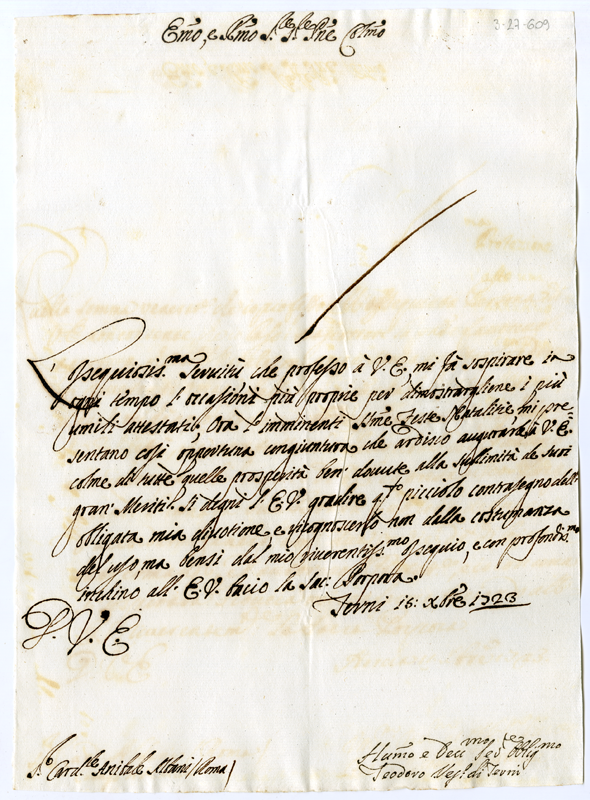 3-27-609
Em̃o, e R̃mo S.re S.re P̃ne Col̃mo
L'ossequiosis.ma Servitù che professo à V. E. mi fà sospirare in
ogni tempo l'occasioni più proprie per dimostrargliene i più
umili attestati; Ora l'imminenti Sṽme Feste Natalitie mi pre=
sentano così opportuna congiuntura che ardisco augurare à V. E.
colme di tutte quelle prosperità ben dovute alla sublimità de suoi
gran Meriti. Si degni l'E. V. gradire q.to picciolo contrasegno dell'
obligata mia divotione, e riconoscerlo non dalla costumanza
del uso, ma bensi dal mio riverentiss.mo ossequio, e con profondis.mo
inchino all'E. V. bacio la Sac: Porpora.
Terni 16: Xbre 1723
D. V. E.
S.r Card.le Anibale Albani / Roma /
Hum̃o e Dev.mo Ser.re Oblig.mo
Teodoro Ves.o di Terni